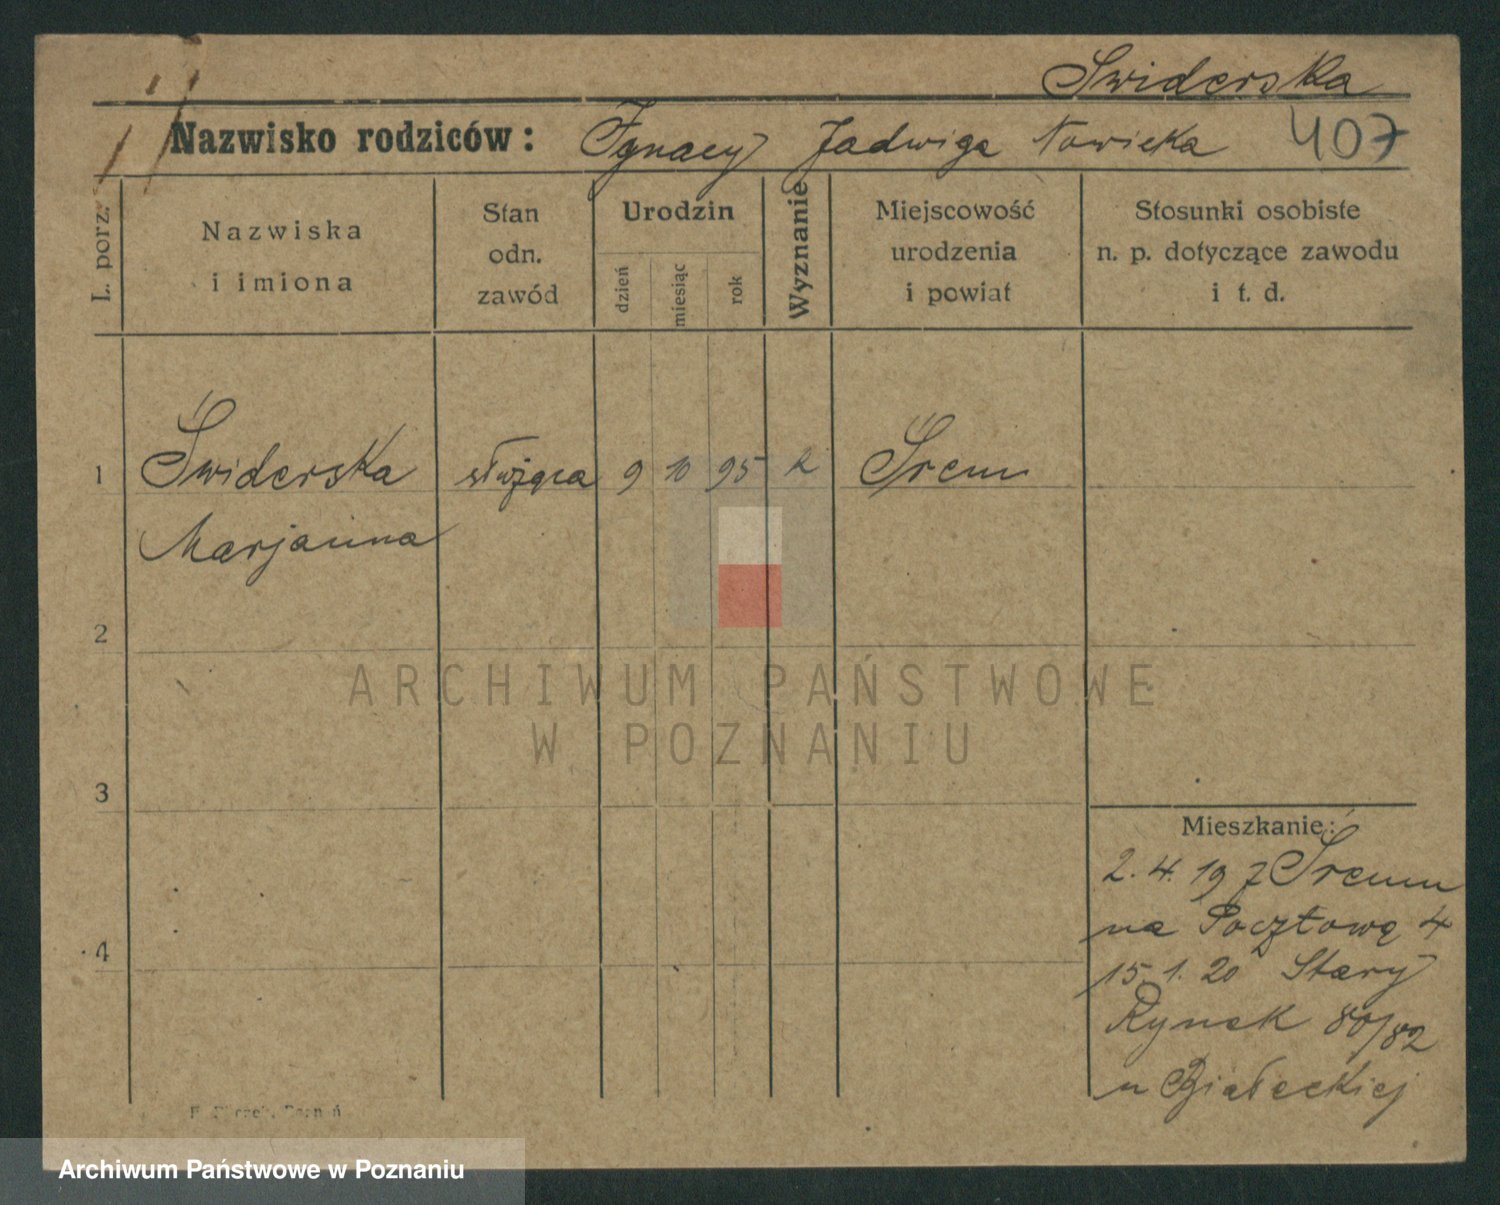 Swiderska
Nazwisko rodziców: Ignacy Jadwiga Nowicka 407
L. porz.
Nazwiska
i imiona
Stan
odn.
zawód
Urodzin
dzień
miesiąc
rok
Wyznanie
Miejscowość
urodzenia
i powiat
Stosunki osobiste
n. p. dotyczące zawodu
i t. d.
1 Świderska służąca 9 10 95 k Śrem
Marjanna
2
3
4
ARCHIWUM PAŃSTWOWE
W POZNANIU
Mieszkanie:
2. 4. 19 z Śremu
na Pocztową 4
15. 1. 20 Stary
Rynek 80/82
u Białeckiej
Archiwum Państwowe w Poznaniu